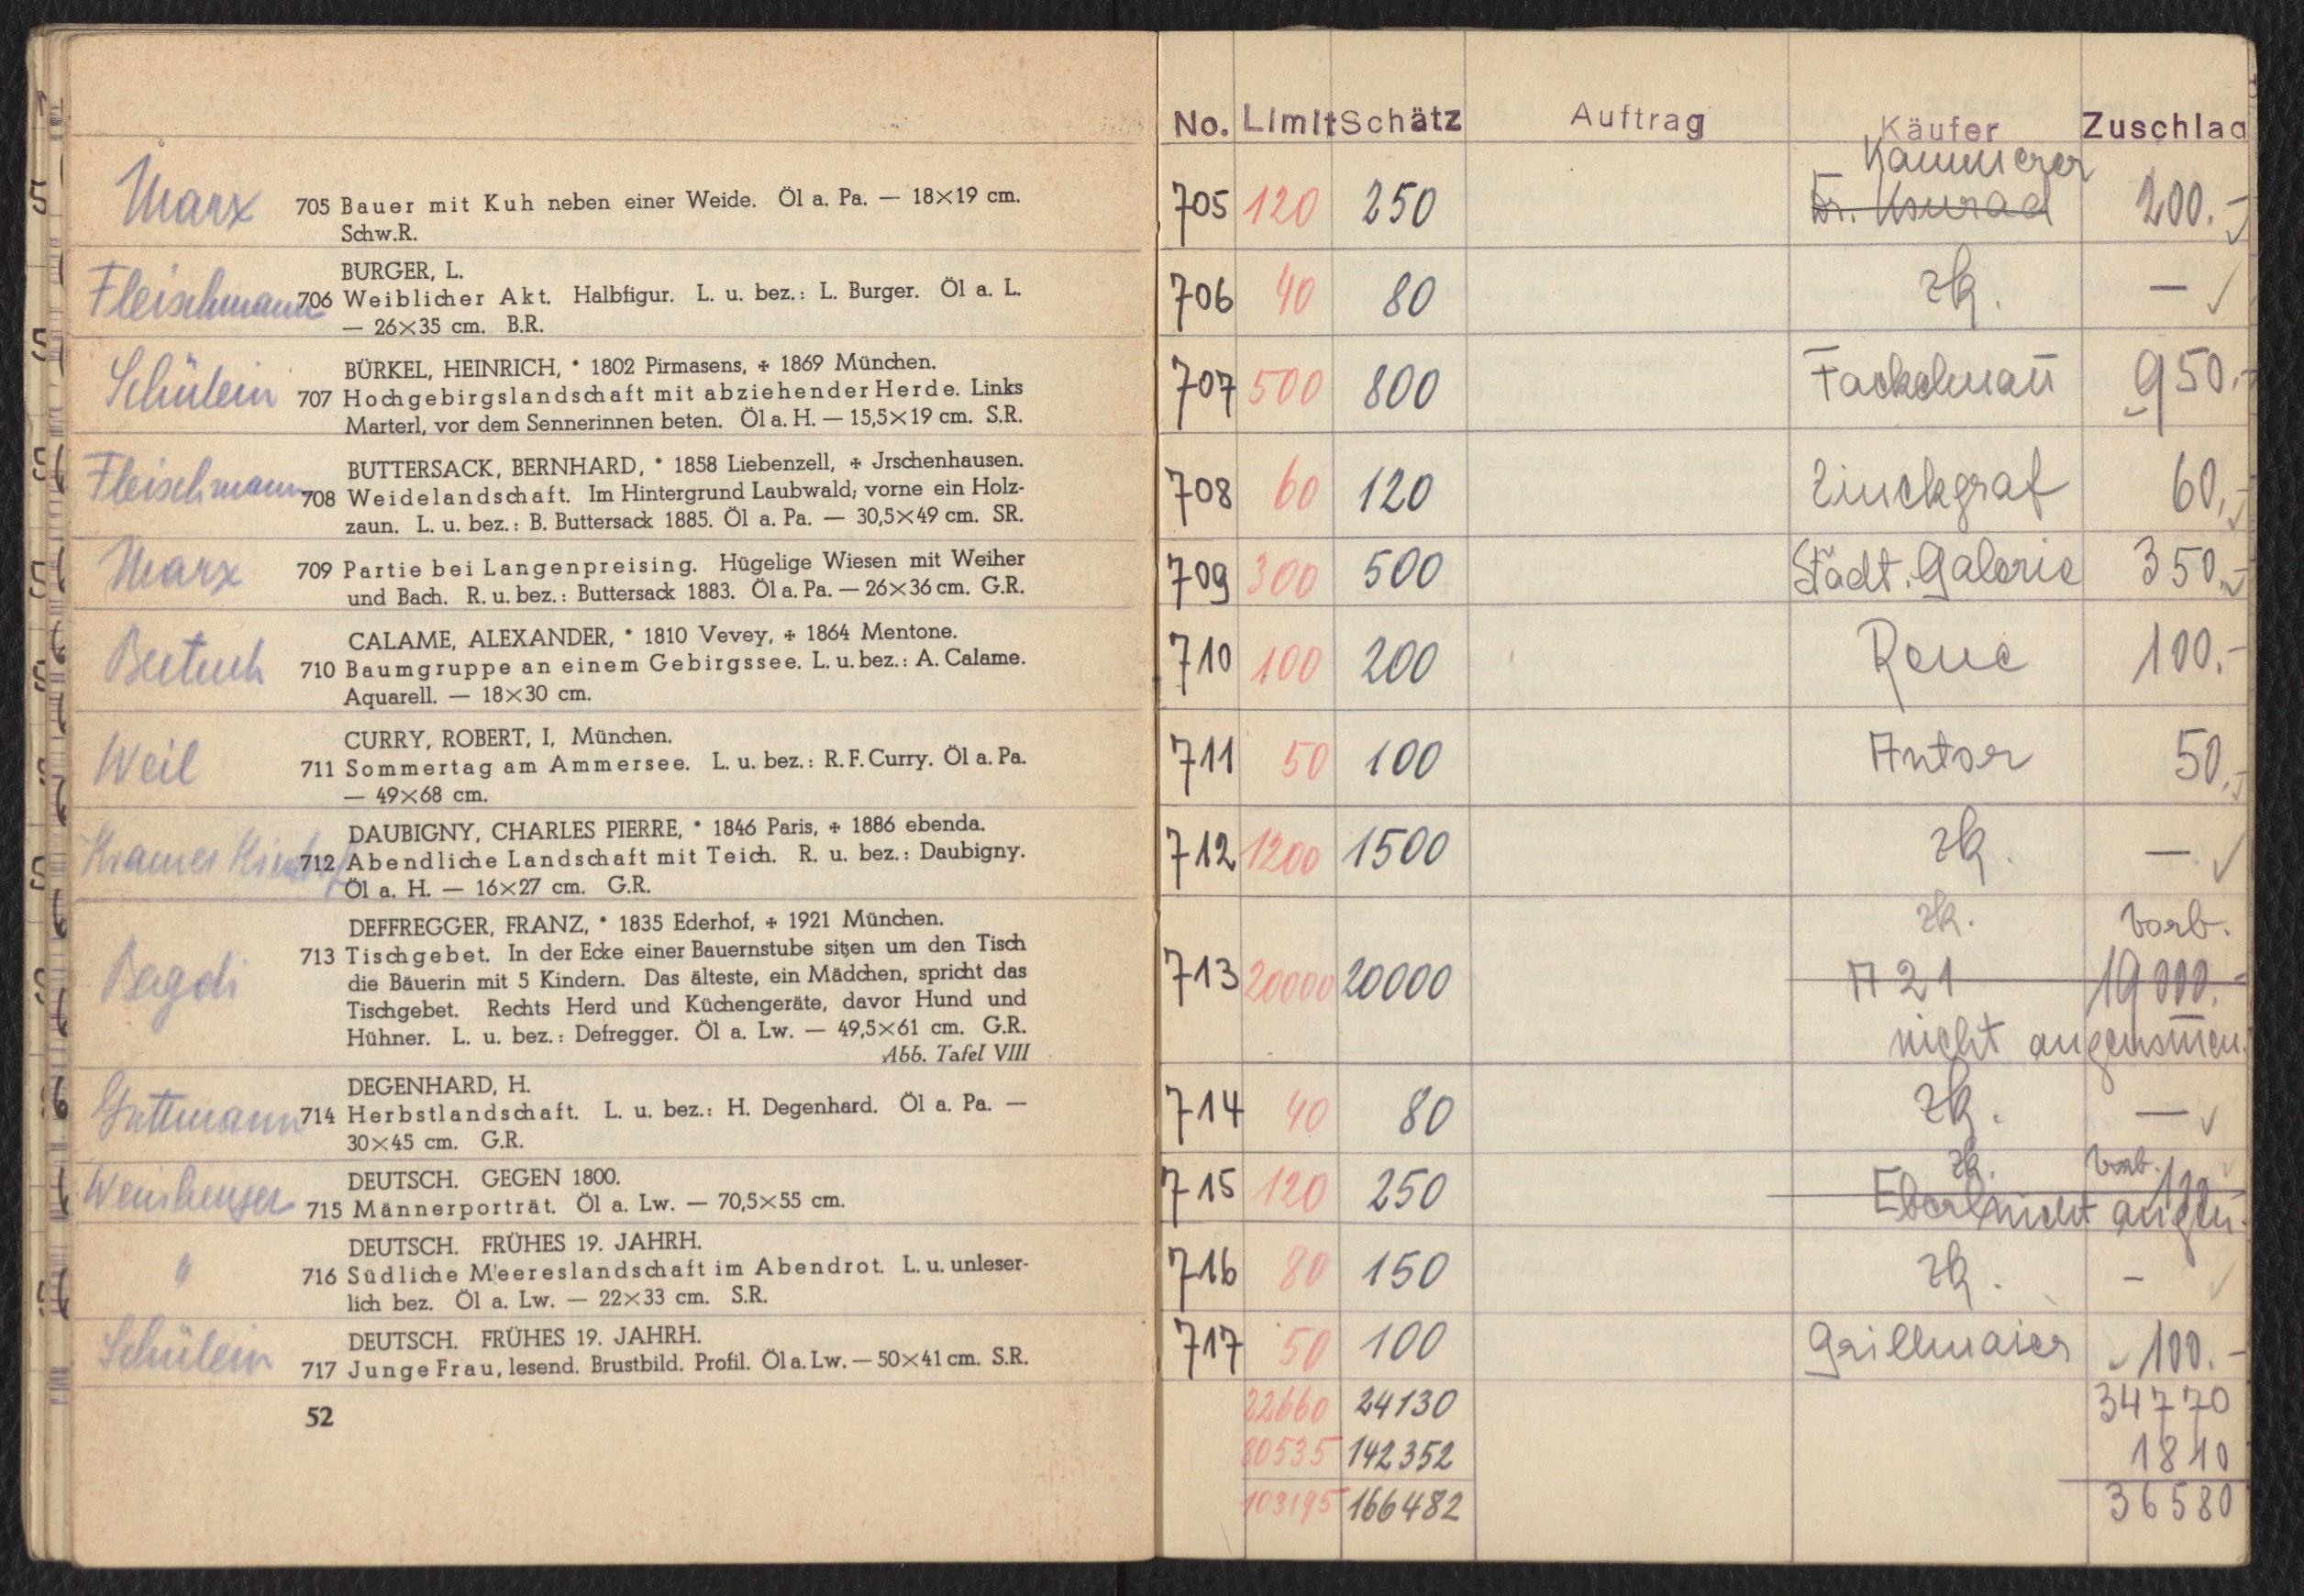 Marx
705 Bauer mit Kuh neben einer Weide. Öl a. Pa. — 18×19 cm.
Schw.R.
BURGER, L.
Fleischmann 706 Weiblicher Akt. Halbfigur. L. u. bez.: L. Burger. Öl a. L.
— 26×35 cm. B.R.
BÜRKEL, HEINRICH, * 1802 Pirmasens, ✝ 1869 München.
Schülein 707 Hochgebirgslandschaft mit abziehender Herde. Links
Marterl, vor dem Sennerinnen beten. Öl a. H. — 15,5×19 cm. S.R.
BUTTERSACK, BERNHARD, * 1858 Liebenzell, ✝ Jrschenhausen.
Fleischmann 708 Weidelandschaft. Im Hintergrund Laubwald; vorne ein Holz-
zaun. L. u. bez.: B. Buttersack 1885. Öl a. Pa. — 30,5×49 cm. SR.
Marx 709 Partie bei Langenpreising. Hügelige Wiesen mit Weiher
und Bach. R. u. bez.: Buttersack 1883. Öl a. Pa. — 26×36 cm. G.R.
CALAME, ALEXANDER, * 1810 Vevey, ✝ 1864 Mentone.
710 Baumgruppe an einem Gebirgssee. L. u. bez.: A. Calame.
Aquarell. — 18×30 cm.
CURRY, ROBERT, I, München.
Weil 711 Sommertag am Ammersee. L. u. bez.: R. F. Curry. Öl a. Pa.
— 49×68 cm.
DAUBIGNY, CHARLES PIERRE, * 1846 Paris, ✝ 1886 ebenda.
712 Abendliche Landschaft mit Teich. R. u. bez.: Daubigny.
Öl a. H. — 16×27 cm. G.R.
DEFFREGGER, FRANZ, * 1835 Ederhof, ✝ 1921 München.
Bagdi 713 Tischgebet. In der Ecke einer Bauernstube sitzen um den Tisch
die Bäuerin mit 5 Kindern. Das älteste, ein Mädchen, spricht das
Tischgebet. Rechts Herd und Küchengeräte, davor Hund und
Hühner. L. u. bez.: Defregger. Öl a. Lw. — 49,5×61 cm. G.R.
Abb. Tafel VIII
DEGENHARD, H.
Guttmann 714 Herbstlandschaft. L. u. bez.: H. Degenhard. Öl a. Pa. —
30×45 cm. G.R.
DEUTSCH. GEGEN 1800.
715 Männerporträt. Öl a. Lw. — 70,5×55 cm.
DEUTSCH. FRÜHES 19. JAHRH.
" 716 Südliche Meereslandschaft im Abendrot. L. u. unleser-
lich bez. Öl a. Lw. — 22×33 cm. S.R.
DEUTSCH. FRÜHES 19. JAHRH.
Schülein 717 Junge Frau, lesend. Brustbild. Profil. Öl a. Lw. — 50×41 cm. S.R.
52
No. Limit Schätz Auftrag Käufer Zuschlag
Kammerer
705 120 250 Dr. Konrad 200.-
706 40 80 zk. —
707 500 800 Fackelman̄ 950.-
708 60 120 Zinckgraf 60.-
709 300 500 Städt. Galerie 350.-
710 100 200 René 100.-
711 50 100 50.-
712 1200 1500 zk. —
zk. vorb.
713 20000 20000 A 21 19000.-
nicht angenom̄en.
714 40 80 zk. —
zk. vorb.
715 120 250 Eberl nicht
716 80 150 zk. -
717 50 100 Grillmaier 100.-
22660 24130 34770
80535 142352 1810
103195 166482 36580